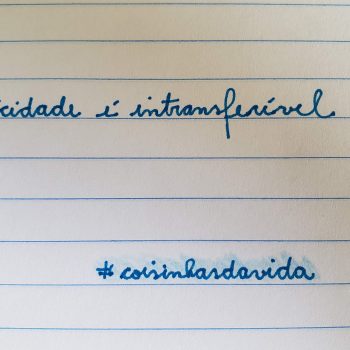 cidade é intransferível
#coisinhasdavida